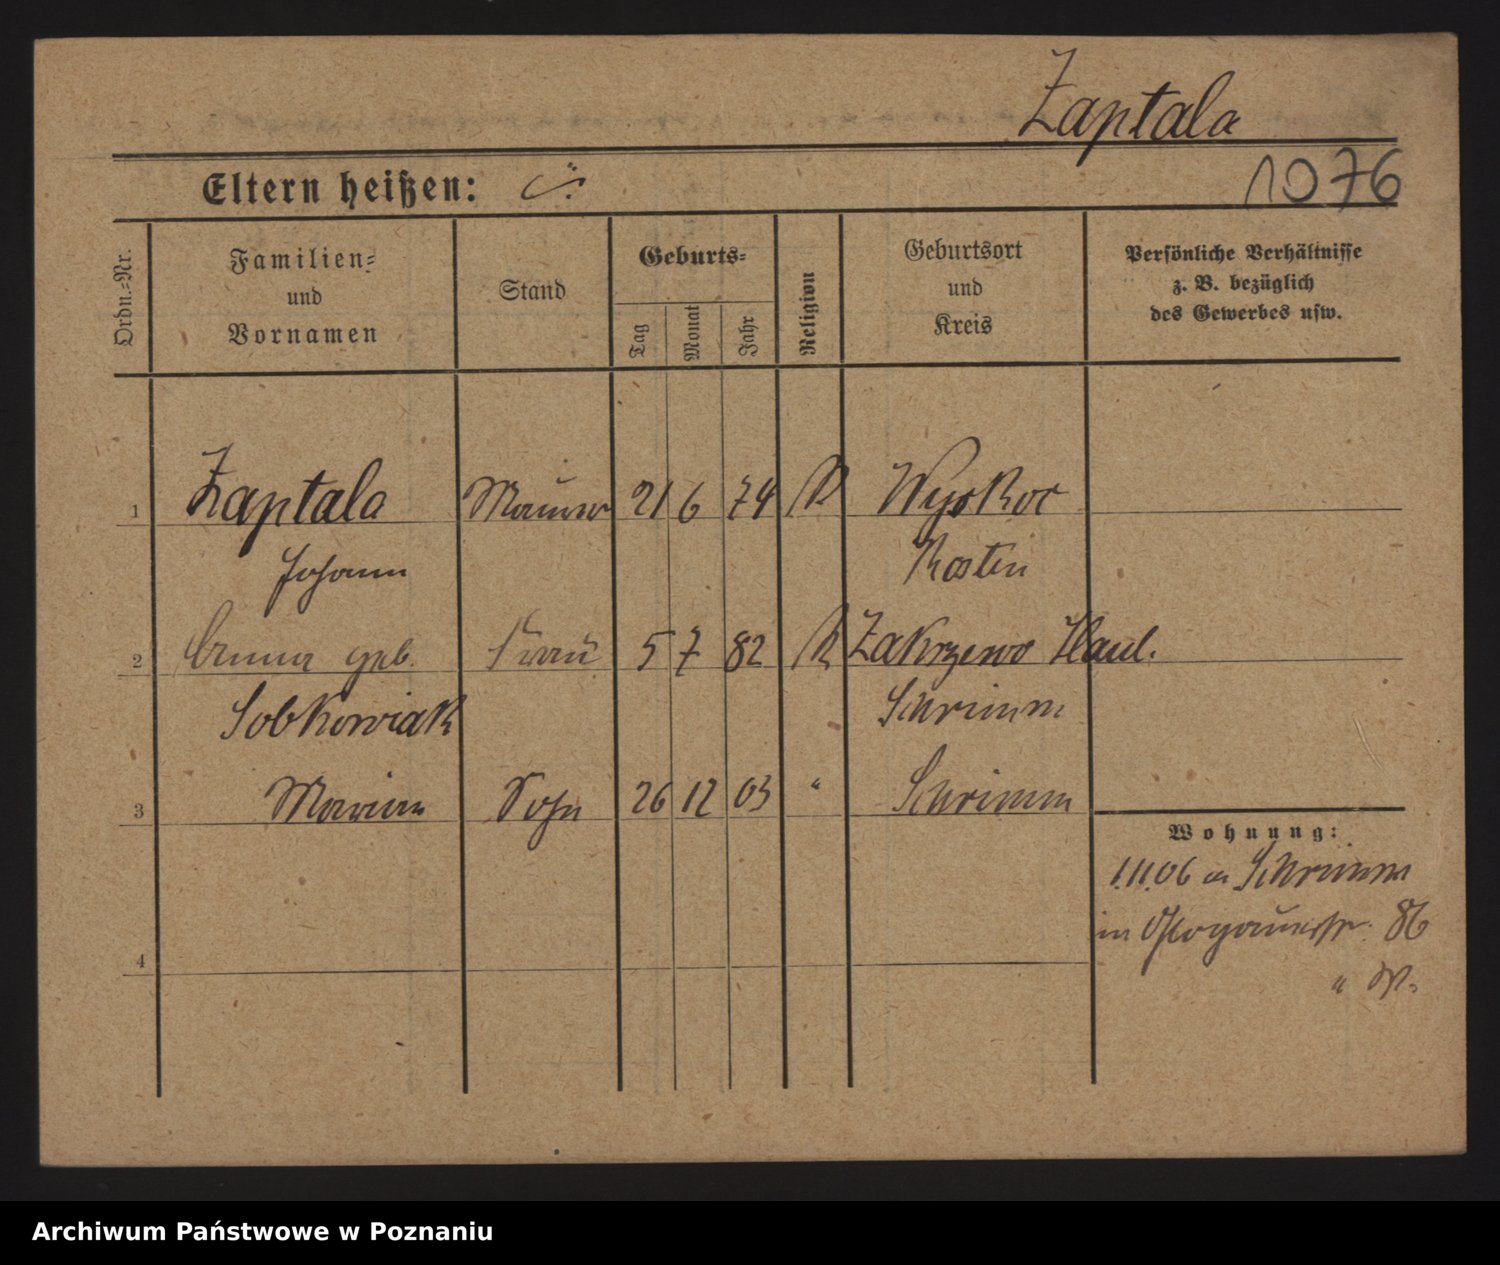 Zaptala
Eltern heißen: 1076
Ordn.-Nr.
Familien-
und
Vornamen
Stand
Geburts-
Tag
Monat
Jahr
Religion
Geburtsort
und
Kreis
Persönliche Verhältnisse
z. B. bezüglich
des Gewerbes usw.
1 Zaptala Maurer 21 6 74 K Wyskoc
Johann Kosten
2 Anna geb. Frau 5 7 82 K Zakrzewo Haul.
Sobkowiak Schrimm
3 Marian Sohn 26 12 03 " Schrimm
Wohnung:
1.11.06 a Schrimm
in Glogauerstr. 86
4
" W.
Archiwum Państwowe w Poznaniu